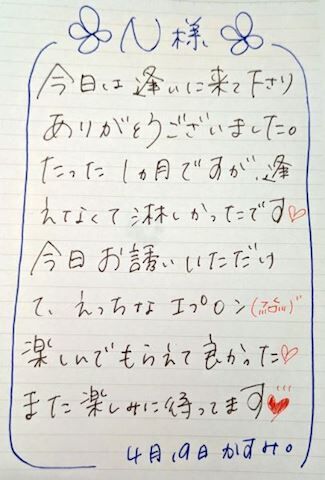 N様
今日は逢いに来て下さり
ありがとうございました。
たった1ヵ月ですが、逢
えなくて淋しかったです♡
今日お誘いいただけ
て、えっちなエプロン
楽しんでもらえて良かった♡
また楽しみに待ってます♥
4月19日 かすみ。